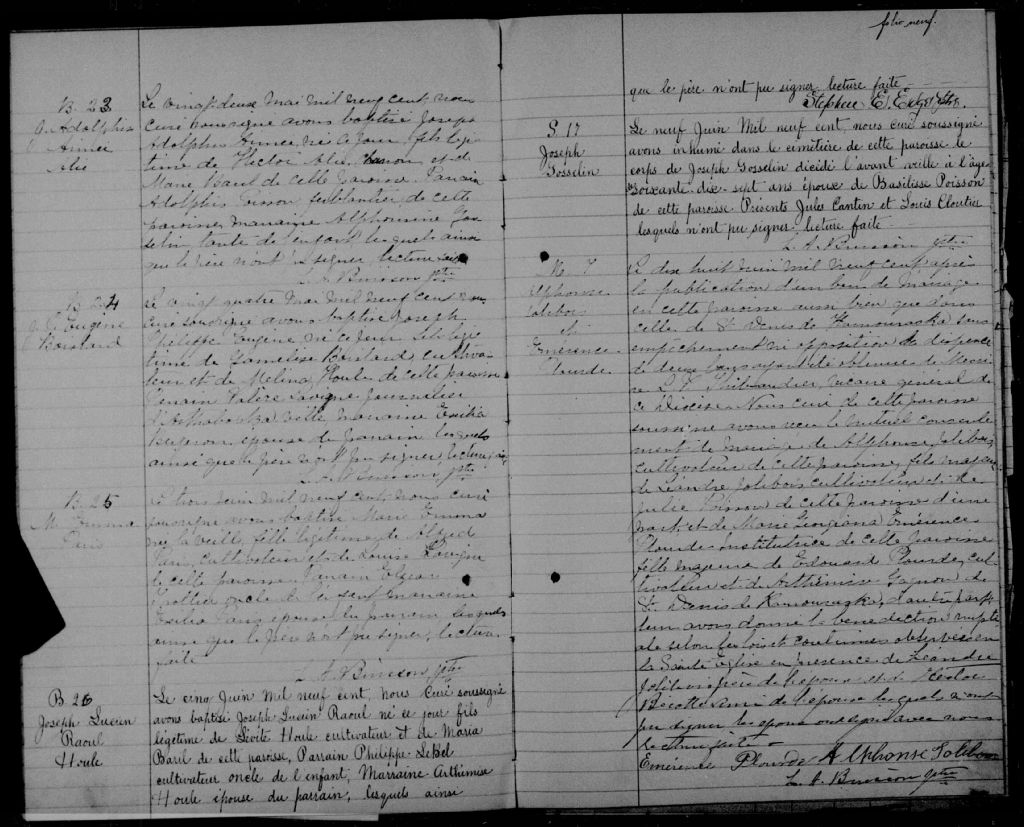 B. 23
J. Adolphis
Aimer
Alie
Le vingt deux Mai mil neuf cent nous
curé soussigné avons baptisé Joseph
Adolphis Aimer né ce jour fils légi
time de Hector Alie, et de
Marie Baril de cette paroisse. Parrain
Adolphis Poisson ferblantier de cette
paroisse, marraine Alphonsine Gos
selin, tante de l'enfant lesquels ainsi
que le père n'ont pu signer lecture faite
L. A. Buisson ptre
B. 24
J. P. Eugène
Boisland
Le vingt quatre Mai mil neuf cent nous
curé soussigné avons baptisé Joseph
Philippe Eugène né ce jour fils légi
time de cultiva
teur et de Melina Houle de cette paroisse
Parrain Valère Lavigne journalier
d'Arthabaska ville marraine Exilia
Bergeron épouse de parrain lesquels
ainsi que le père n'ont pu signer lecture faite
L. A. Buisson ptre
B. 25
M. Emma
Paris
Le trois Juin mil neuf cent nous curé
soussigné avons baptisé Marie Emma
née la veille, fille légitime de Alfred
Paris, cultivateur et de Louise Lavigne
de cette paroisse. Parrain Elzear
Trottier oncle de l'enfant marraine
Exilia Paris épouse du parrain lesquels
ainsi que le père n'ont pu signer, lecture
faite
L. A. Buisson ptre
B. 26
Joseph Lucien
Raoul
Houle
Le cinq Juin Mil neuf cent, nous Curé soussigné
avons baptisé Joseph Lucien Raoul né ce jour fils
légitime de Lévite Houle cultivateur et de Maria
Baril de cette paroisse, Parrain Philippe LeBel
cultivateur oncle de l'enfant, Marraine Arthémise
Houle épouse du parrain, lesquels ainsi
folio neuf.
que le père n'ont pu signer lecture faite
Stephen E. ptre.
S. 17
Joseph
Gosselin
Le neuf Juin Mil neuf cent, nous curé soussigné
avons inhumé dans le cimetière de cette paroisse le
corps de Joseph Gosselin décédé l'avant veille à l'âge
de soixante-dix-sept ans époux de Basilisse Poisson
de cette paroisse Présents Jules Cantin et Louis Cloutier
lesquels n'ont pu signer lecture faite
L. A. Buisson ptre
M. 7
Alphonse
Jolibois
et
Emérence
Plourde
Le dix huit Juin mil neuf cent après
la publication d'un ban de mariage
en cette paroisse aussi bien que dans
celle de St Denis de Kamouraska sans
empêchement ni opposition et dispense
de deux bans ayant été obtenue de Messi
re Thibaudier, vicaire général de
ce Diocèse. Nous curé de cette paroisse
soussigné avons reçu le mutuel consente
ment de mariage de Alphonse Jolibois
cultivateur de cette paroisse, fils majeur
de Léandre Jolibois cultivateur et de
Julie Poisson de cette paroisse d'une
part, et de Marie Georgiana Emérence
Plourde institutrice de cette paroisse
fille majeure de Edouard Plourde, cul
tivateur et de Arthémise Gagnon de
St Denis de Kamouraska, d'autre part
leur avons donné la bénédiction nupti
ale selon les lois et coutumes observées en
la Sainte Eglise en présence de Léandre
Jolibois père de l'époux et de Hector
Turcotte ami de l'épouse lesquels n'ont
pu signer les époux ont signé avec nous
lecture faite
Emérence Plourde Alphonse Jolibois
L. A. Buisson ptre